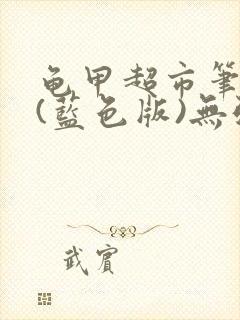 龟甲超市筆
(藍色版)無
武賓